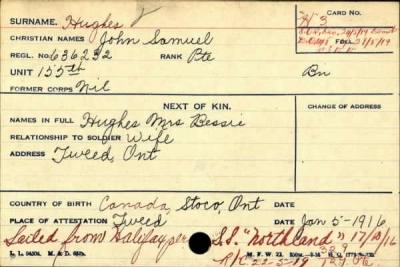 SURNAME. Hughes
CARD NO.
H 3
CHRISTIAN NAMES John Samuel
REGL. NO. 636232 RANK Pte
UNIT 155th Bn
FORMER CORPS Nil
NEXT OF KIN.
CHANGE OF ADDRESS
NAMES IN FULL Hughes Mrs Bessie
RELATIONSHIP TO SOLDIER Wife
ADDRESS Tweed Ont
COUNTRY OF BIRTH Canada, Stoco, Ont
PLACE OF ATTESTATION Tweed DATE Jan 5-1916
Sailed from Halifax per S.S. "Northland" 17/10/16
M. F. W. 22.
R/C 22-5-19